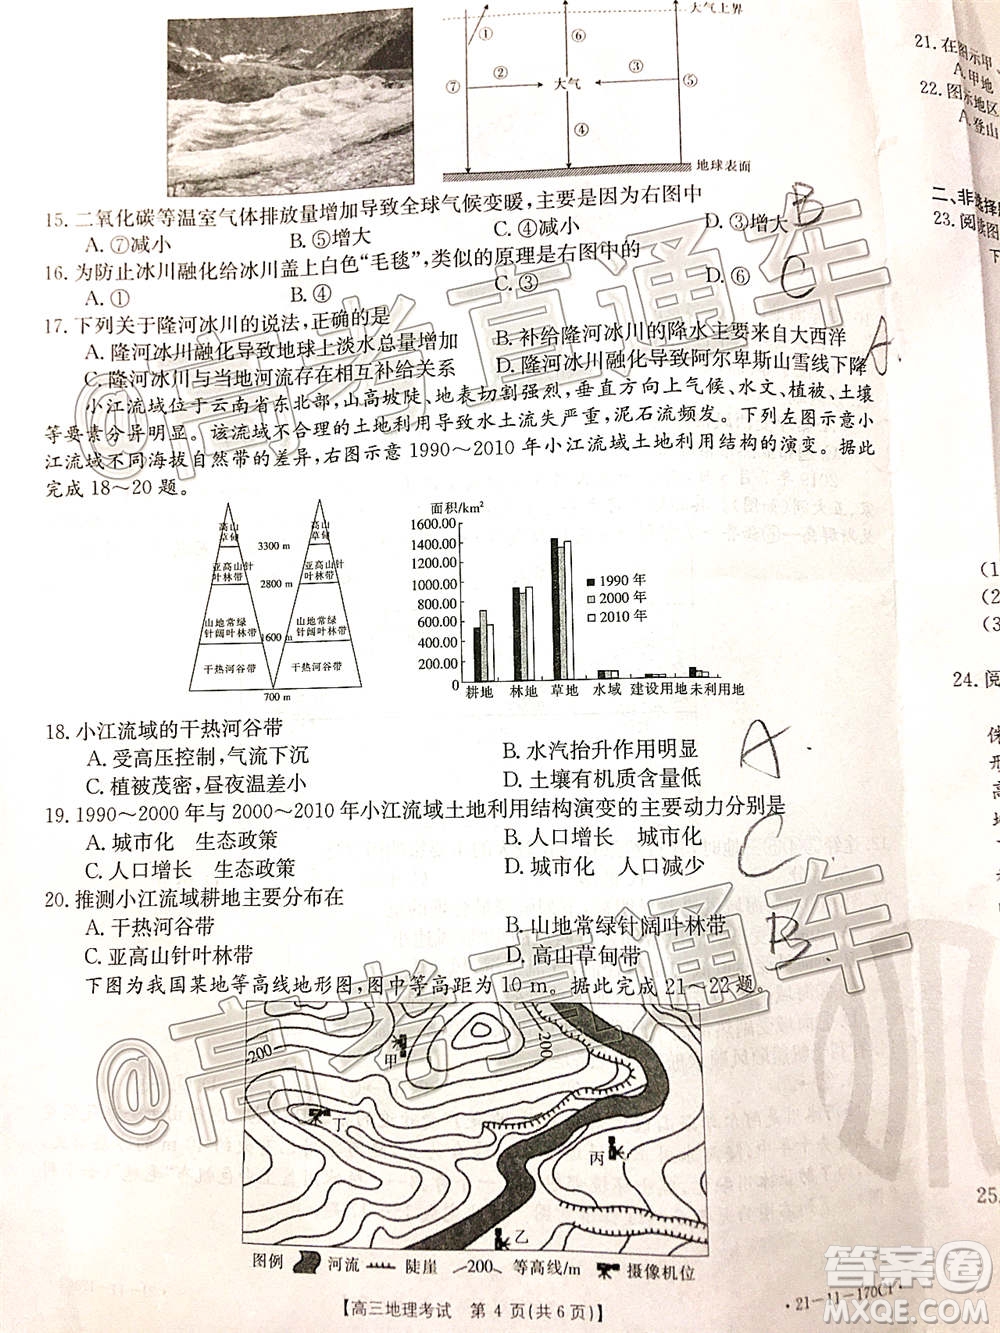 大气上界
①
⑥
⑦
②
大气
③
⑤
④
地球表面
15. 二氧化碳等温室气体排放量增加导致全球气候变暖,主要是因为右图中
A. ⑦减小 B. ⑤增大 C. ④减小 D. ③增大
B
16. 为防止冰川融化给冰川盖上白色“毛毯”,类似的原理是右图中的
A. ① B. ④ C. ③ D. ⑥
C
17. 下列关于隆河冰川的说法,正确的是
A. 隆河冰川融化导致地球上淡水总量增加 B. 补给隆河冰川的降水主要来自大西洋
C. 隆河冰川与当地河流存在相互补给关系 D. 隆河冰川融化导致阿尔卑斯山雪线下降
A.
小江流域位于云南省东北部,山高坡陡、地表切割强烈,垂直方向上气候、水文、植被、土壤
等要素分异明显。该流域不合理的土地利用导致水土流失严重,泥石流频发。下列左图示意小
江流域不同海拔自然带的差异,右图示意 1990~2010 年小江流域土地利用结构的演变。据此
完成 18~20 题。
高山草甸 3300 m 高山草甸
亚高山针叶林带 2800 m 亚高山针叶林带
山地常绿针阔叶林带 1600 m 山地常绿针阔叶林带
干热河谷带 700 m 干热河谷带
面积/km²
1600.00
1400.00
1200.00
1000.00
800.00
600.00
400.00
200.00
0
1990 年
2000 年
2010 年
耕地 林地 草地 水域 建设用地 未利用地
18. 小江流域的干热河谷带
A. 受高压控制,气流下沉 B. 水汽抬升作用明显
C. 植被茂密,昼夜温差小 D. 土壤有机质含量低
A.
19. 1990~2000 年与 2000~2010 年小江流域土地利用结构演变的主要动力分别是
A. 城市化 生态政策 B. 人口增长 城市化
C. 人口增长 生态政策 D. 城市化 人口减少
C.
20. 推测小江流域耕地主要分布在
A. 干热河谷带 B. 山地常绿针阔叶林带
C. 亚高山针叶林带 D. 高山草甸带
B.
下图为我国某地等高线地形图,图中等高距为 10 m。据此完成 21~22 题。
200
甲
200
丁
丙
乙
图例 河流 陡崖 200 等高线/m 摄像机位
【高三地理考试 第 4 页(共 6 页)】
·21-11-170C1·
21. 在图示甲、
A. 甲地
22. 图示地区
A. 登山
二、非选择
23. 阅读图
下
(1
(2
(3
24. 阅
保
形
高
地
25.
@高考直通车
@高考直通车
答案圈
MXQE.COM